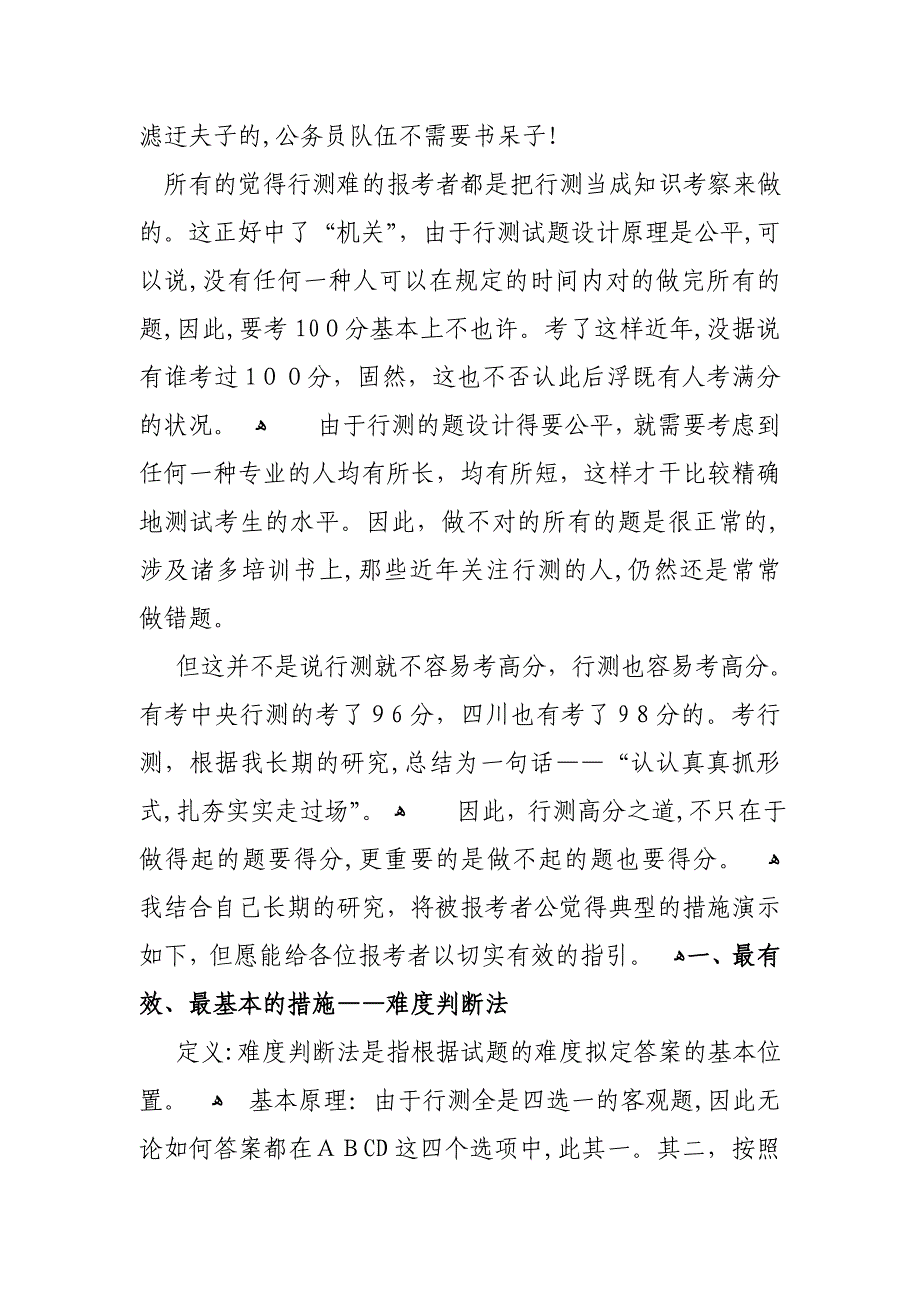 滤迂夫子的,公务员队伍不需要书呆子!
所有的觉得行测难的报考者都是把行测当成知识考察来做
的。这正好中了“机关”，由于行测试题设计原理是公平,可
以说,没有任何一种人可以在规定的时间内对的做完所有的
题,因此,要考10０分基本上不也许。考了这样近年,没据说
有谁考过１００分，固然，这也不否认此后浮既有人考满分
的状况。 ﻫ 由于行测的题设计得要公平，就需要考虑到
任何一种专业的人均有所长，均有所短，这样才干比较精确
地测试考生的水平。因此，做不对的所有的题是很正常的,
涉及诸多培训书上,那些近年关注行测的人,仍然还是常常
做错题。
但这并不是说行测就不容易考高分，行测也容易考高分。
有考中央行测的考了９6分，四川也有考了９8分的。考行
测，根据我长期的研究,总结为一句话——“认认真真抓形
式,扎夯实实走过场”。 ﻫ 因此，行测高分之道,不只在于
做得起的题要得分,更重要的是做不起的题也要得分。 ﻫ
我结合自己长期的研究，将被报考者公觉得典型的措施演示
如下，但愿能给各位报考者以切实有效的指引。 ﻫ一、最有
效、最基本的措施——难度判断法
定义:难度判断法是指根据试题的难度拟定答案的基本位
置。 ﻫ 基本原理：由于行测全是四选一的客观题,因此无
论如何答案都在ＡＢCD这四个选项中,此其一。其二，按照